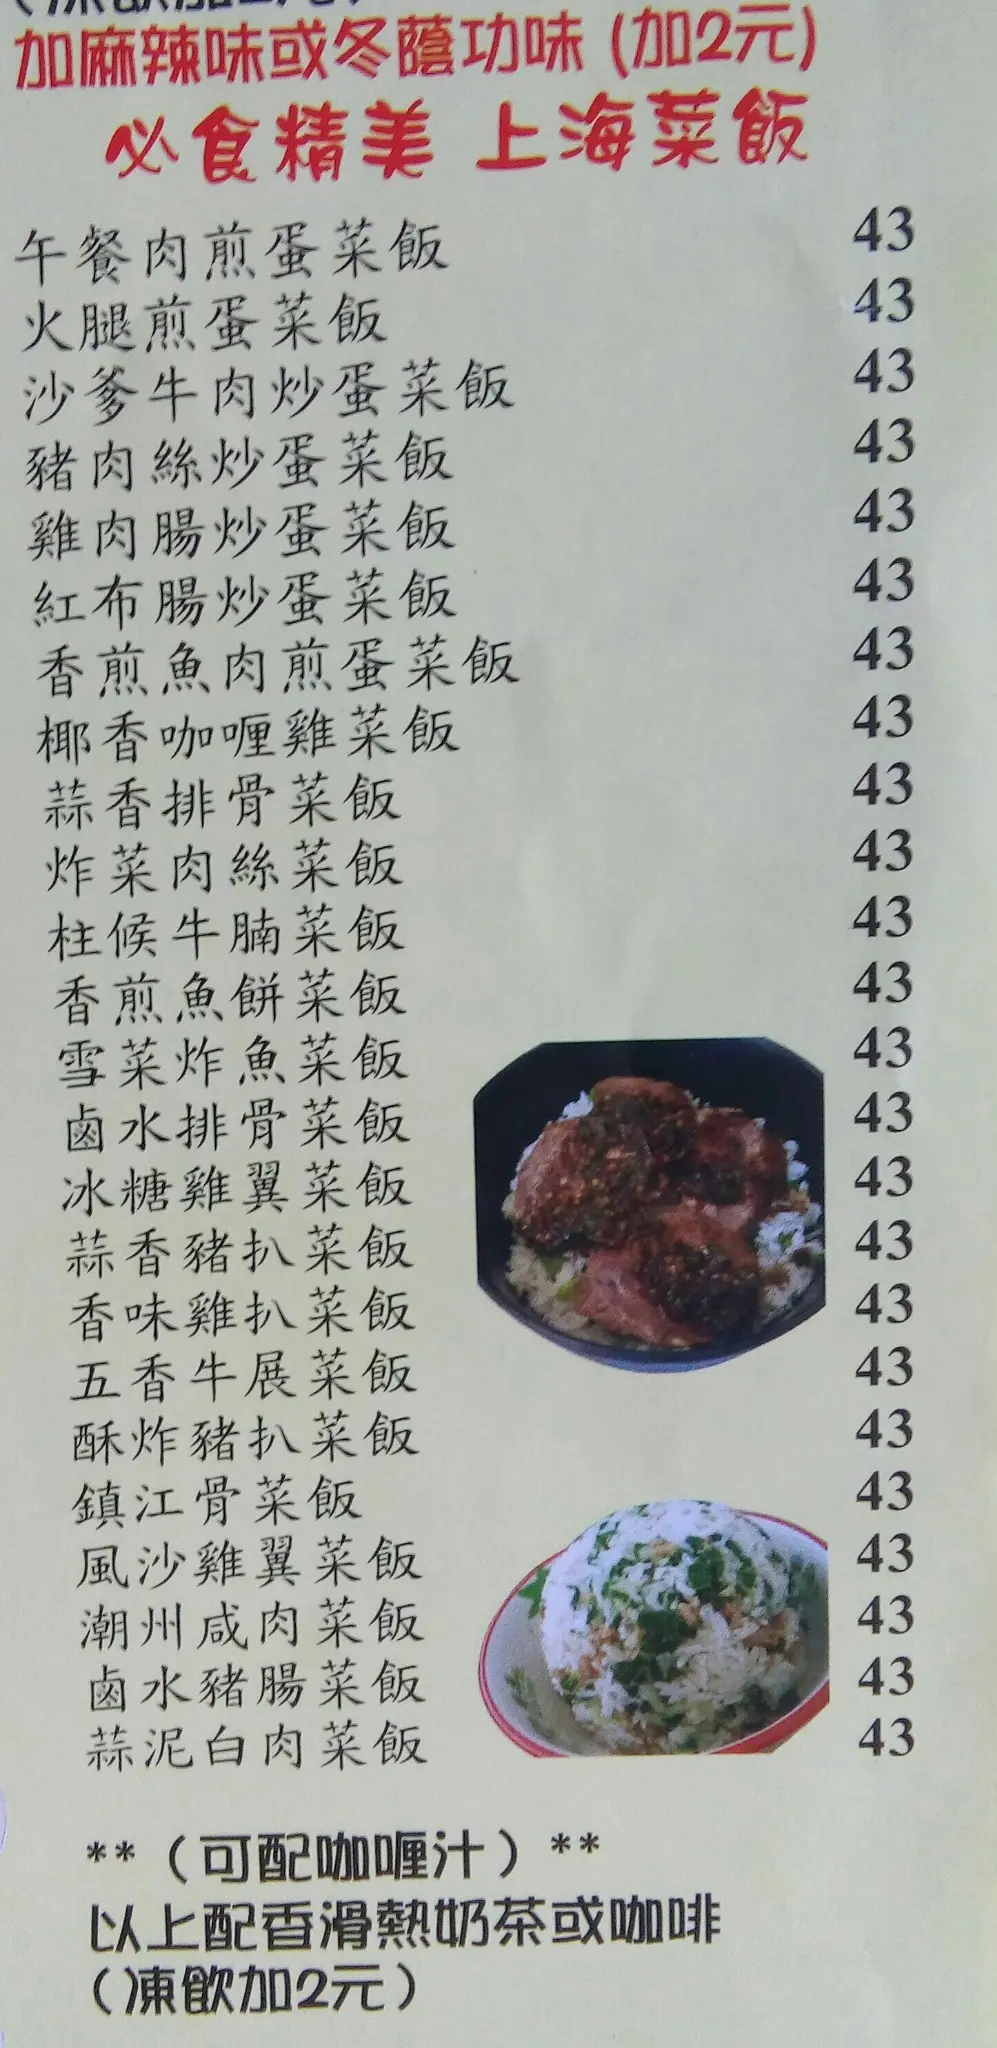 加麻辣味或冬蔭功味 (加2元)
必食精美 上海菜飯
午餐肉煎蛋菜飯 43
火腿煎蛋菜飯 43
沙爹牛肉炒蛋菜飯 43
豬肉絲炒蛋菜飯 43
雞肉腸炒蛋菜飯 43
紅布腸炒蛋菜飯 43
香煎魚肉煎蛋菜飯 43
椰香咖喱雞菜飯 43
蒜香排骨菜飯 43
炸菜肉絲菜飯 43
柱候牛腩菜飯 43
香煎魚餅菜飯 43
雪菜炸魚菜飯 43
鹵水排骨菜飯 43
冰糖雞翼菜飯 43
蒜香豬扒菜飯 43
香味雞扒菜飯 43
五香牛展菜飯 43
酥炸豬扒菜飯 43
鎮江骨菜飯 43
風沙雞翼菜飯 43
潮州咸肉菜飯 43
鹵水豬腸菜飯 43
蒜泥白肉菜飯 43
**（可配咖喱汁）**
以上配香滑熱奶茶或咖啡
（凍飲加2元）